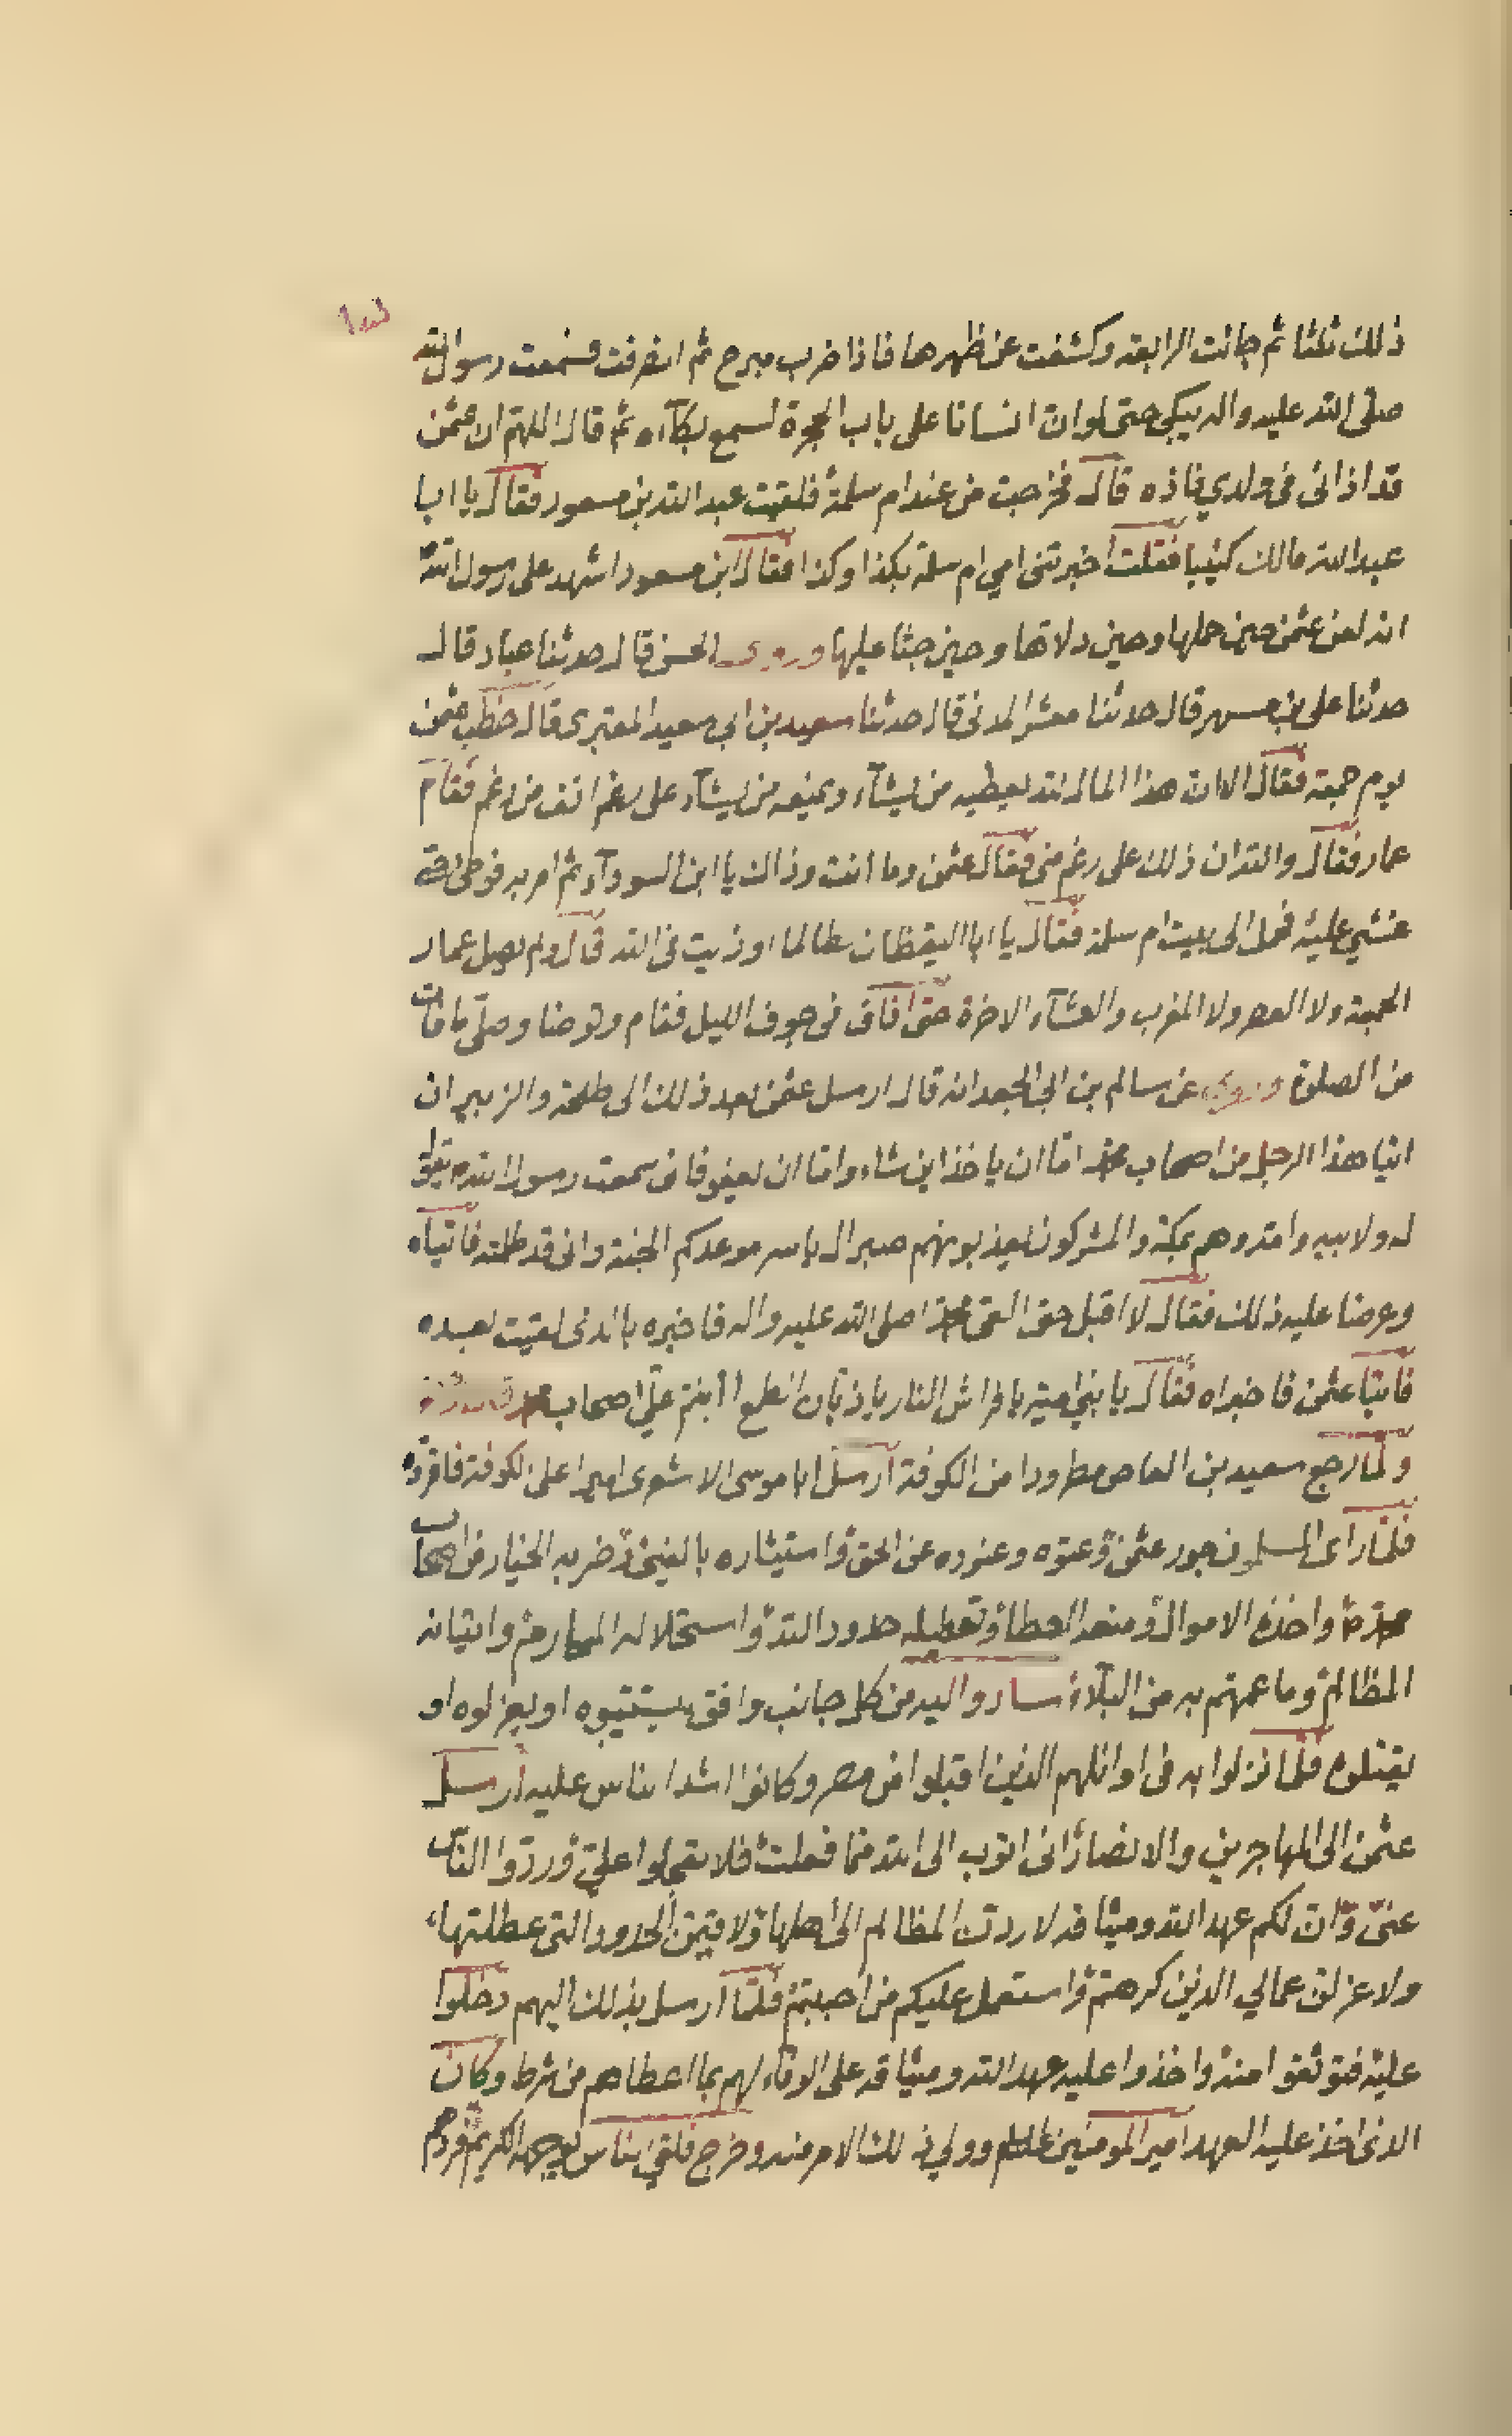 ذلك ثلثا ثم جائت الرابعة وكشفت عن ظهرها فاذا ضرب مبرح ثم انصرفت فسمعت رسول الله
صلى الله عليه واله يبكى حتى لو ان انسانا على باب الحجرة لسمع بكآءه ثم قال اللهم ان عثمن
قد اذانى فى ولدي فاذه قال فخرجت من عند ام سلمة فلقيت عبد الله بن مسعود فقال يا ابا
عبد الله مالك كئيبا فقلت اخبرتنى امي ام سلمة بكذا وكذا فقال ابن مسعود اشهد على رسول الله
انه لعن عثمن حين حملها وحين دلاها وحين جثا عليها وروى الحسن قال حدثنا عباد قال
حدثنا على بن مسهر قال حدثنا معشر المدنى قال حدثنا سعيد بن ابي سعيد المقبرى قال خطب عثمن
يوم جمعة فقال الا ان هذا المال لله يعطيه من يشآء ويمنعه من يشآء على رغم انف من رغم فقام
عمار فقال والله ان ذلك على رغم منى فقال عثمن وما انت وذاك يا ابن السودآء ثم امر به فوطئ حتى
غشي عليه فحمل الى بيت ام سلمة فقال يا ابا اليقظان طالما اوذيت فى الله قال ولم يصل عمار
الجمعة ولا العصر ولا المغرب والعشآء الاخرة حتى افاق فى جوف الليل فقام وتوضا وصلى ما فات
من الصلوة وروى عن سالم بن ابى الجعد انه قال ارسل عثمن بعد ذلك الى طلحة والزبير ان
اتيا هذا الرجل من اصحاب محمد اما ان ياخذ اين شاء واما ان يعفو فانى سمعت رسول الله يقول
له ولابيه وامه وهم بمكة والمشركون يعذبونهم صبرا ال ياسر موعدكم الجنة وانى قد ظلمته فاتياه
وعرضا عليه ذلك فقال لا اقبل حتى القى محمدا صلى الله عليه واله فاخبره بالذى لقيت بعده
فاتيا عثمن فاخبراه فقال يا بني امية يا فراش النار يا ذبان الطمع االبتم علي اصحاب محمد
ولما رجع سعيد بن العاص مطرودا من الكوفة ارسل ابا موسى الاشعرى اميرا على الكوفة فاقروه
فلما راى المسلمون جور عثمن وعتوه وعنوده عن الحق واستيثاره بالفيئ وضربه الخيار من اصحاب
محمد واخذه الاموال ومنعه العطا وتعطيله حدود الله واستحلاله المحارم واتيانه
المظالم وما عمهم به من البلآء ساروا اليه من كل جانب وافق يستتيبوه او يعزلوه او
يقتلوه فلما نزلوا به فى اوائلهم الذين اقبلوا من مصر وكانوا اشد الناس عليه ارسل
عثمن الى المهاجرين والانصار انى اتوب الى الله مما فعلت فلا تعجلوا علي وردوا الناس
عنى وان لكم عهد الله وميثاقه لاردن المظالم الى اهلها ولاقيمن الحدود التى عطلتها
ولاعزلن عمالي الذين كرهتم واستعمل عليكم من احببتم فلما ارسل بذلك اليهم دخلوا
عليه فتوثقوا منه واخذوا عليه عهد الله وميثاقه على الوفآء لهم بما اعطاهم من شرط وكان
الذى اخذ عليه العهد امير المومنين وولي ذلك الامر منه وخرج فلقي الناس بوجهه الكريم فردهم